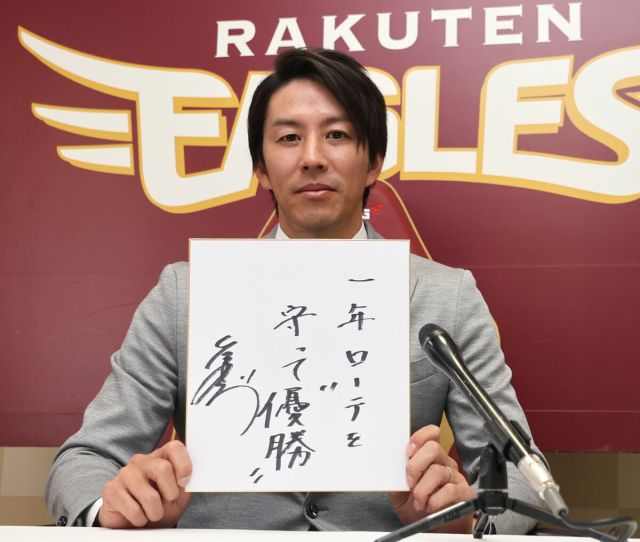 RAKUTEN
EAGLES
一年ローテを
守って
"優勝"